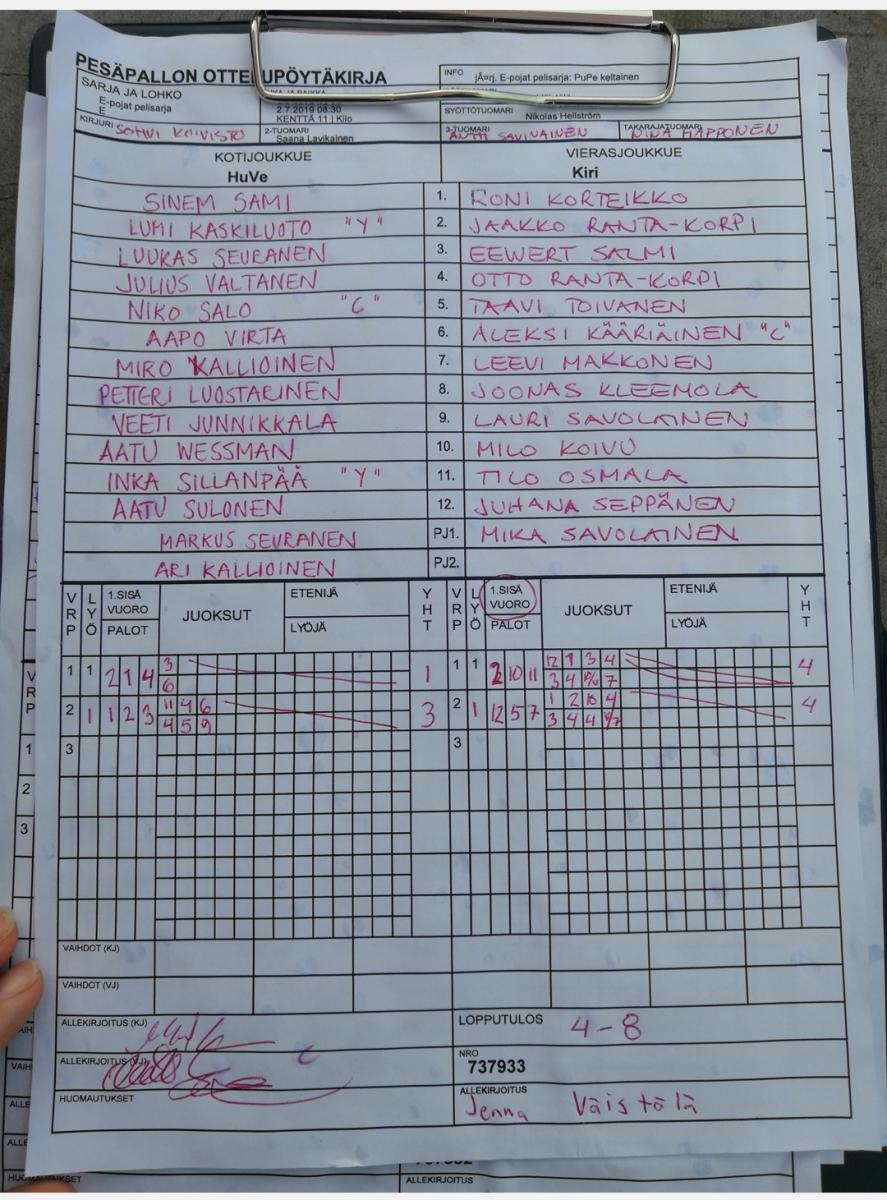 PESÄPALLON OTTELUPÖYTÄKIRJA
INFO jÃ¤rj. E-pojat pelisarja: PuPe keltainen
SARJA JA LOHKO
E-pojat pelisarja
E
2.7.2019 08:30
KENTTÄ 11 | Kilo
SYÖTTÖTUOMARI
Nikolas Hellström
KIRJURI SOHVI KOIVISTO
2-TUOMARI
Saana Lavikainen
3-TUOMARI
ANTTI SAVINAINEN
TAKARAJATUOMARI
NINA HAPPONEN
KOTIJOUKKUE VIERASJOUKKUE
HuVe Kiri
SINEM SAMI 1. RONI KORTEIKKO
LUMI KASKILUOTO "Y" 2. JAAKKO RANTA-KORPI
LUUKAS SEURANEN 3. EEWERT SALMI
JULIUS VALTANEN 4. OTTO RANTA-KORPI
NIKO SALO "C" 5. TAAVI TOIVANEN
AAPO VIRTA 6. ALEKSI KÄÄRIÄINEN "C"
MIRO KALLIOINEN 7. LEEVI MAKKONEN
PETTERI LUOSTARINEN 8. JOONAS KLEEMOLA
VEETI JUNNIKKALA 9. LAURI SAVOLAINEN
AATU WESSMAN 10. MILO KOIVU
INKA SILLANPÄÄ "Y" 11. TICO OSMALA
AATU SULONEN 12. JUHANA SEPPÄNEN
MARKUS SEURANEN PJ1. MIKA SAVOLAINEN
ARI KALLIOINEN PJ2.
VRP LYÖ 1.SISÄ VUORO PALOT JUOKSUT ETENIJÄ LYÖJÄ YHT VRP LYÖ 1.SISÄ VUORO PALOT JUOKSUT ETENIJÄ LYÖJÄ YHT
1 1 2 1 4 3 1 1 1 2 10 11 12 1 3 4 4
6 3 4 7
2 1 1 2 3 11 4 6 3 2 1 12 5 7 1 2 10 4 4
4 5 9 3 4 4
3 3
VAIHDOT (KJ)
VAIHDOT (VJ)
ALLEKIRJOITUS (KJ)
LOPPUTULOS 4-8
ALLEKIRJOITUS (VJ) C
NRO
737933
HUOMAUTUKSET
ALLEKIRJOITUS
Jenna Väistölä
VRP
1
2
3
ALLEKIRJOITUS